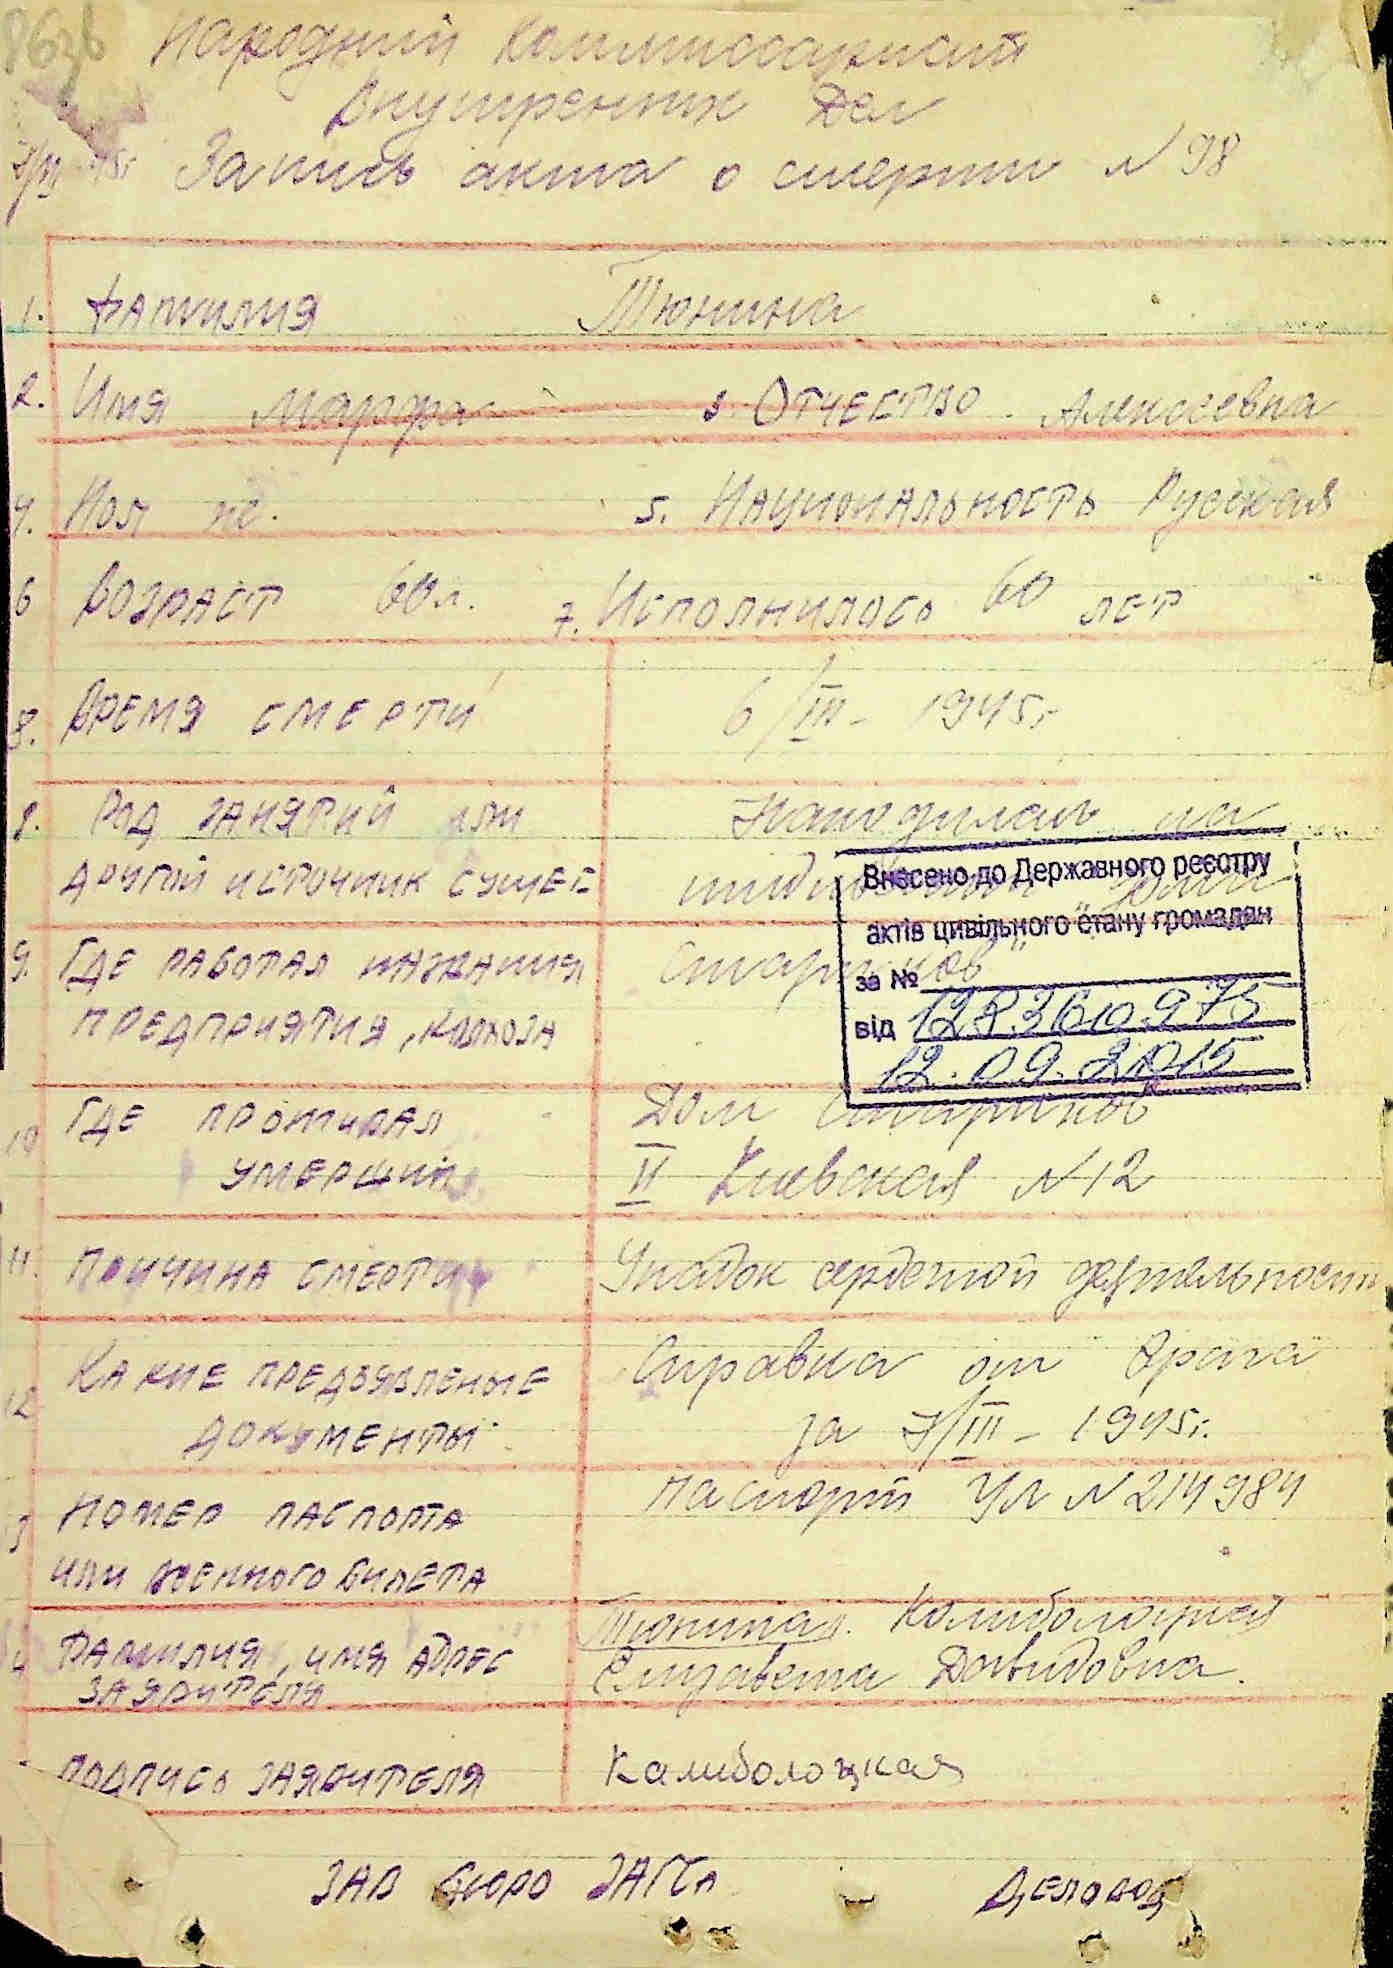 Народний Коммиссариат
Внутренних Дел
7/III 45г. Запись акта о смерти N 98
1. Фамилия Тюнина
2. Имя Марфа 3. Отчество Алексеевна
4. Пол ж. 5. Национальность Русская
6 Возраст 60 л. 7. Исполнилось 60 лет
8. Время смерти 6/III - 1945г
8. Род занятий или Находилась на
другой источник сущес иждивении "Дома
9. Где работал название Стариков"
предприятия, колхоза
Внесено до Державного реєстру
актів цивільного стану громадян
за №
від 1283610975
12.09.2015
10 Где проживал Дом Стариков
умерший II Киевская N 12
11. Причина смерти Упадок сердечной деятельности
12 Какие предзявленые Справка от врача
документы за 7/III - 1945г.
Номер паспорта паспорт УЛ N 214984
или военного билета
Фамилия, имя адрес Тюнина. Калиболоцкая
заявителя Елизавета Давидовна.
подпись заявителя Калиболоцкая
Зав бюро ЗАГСа Деловод